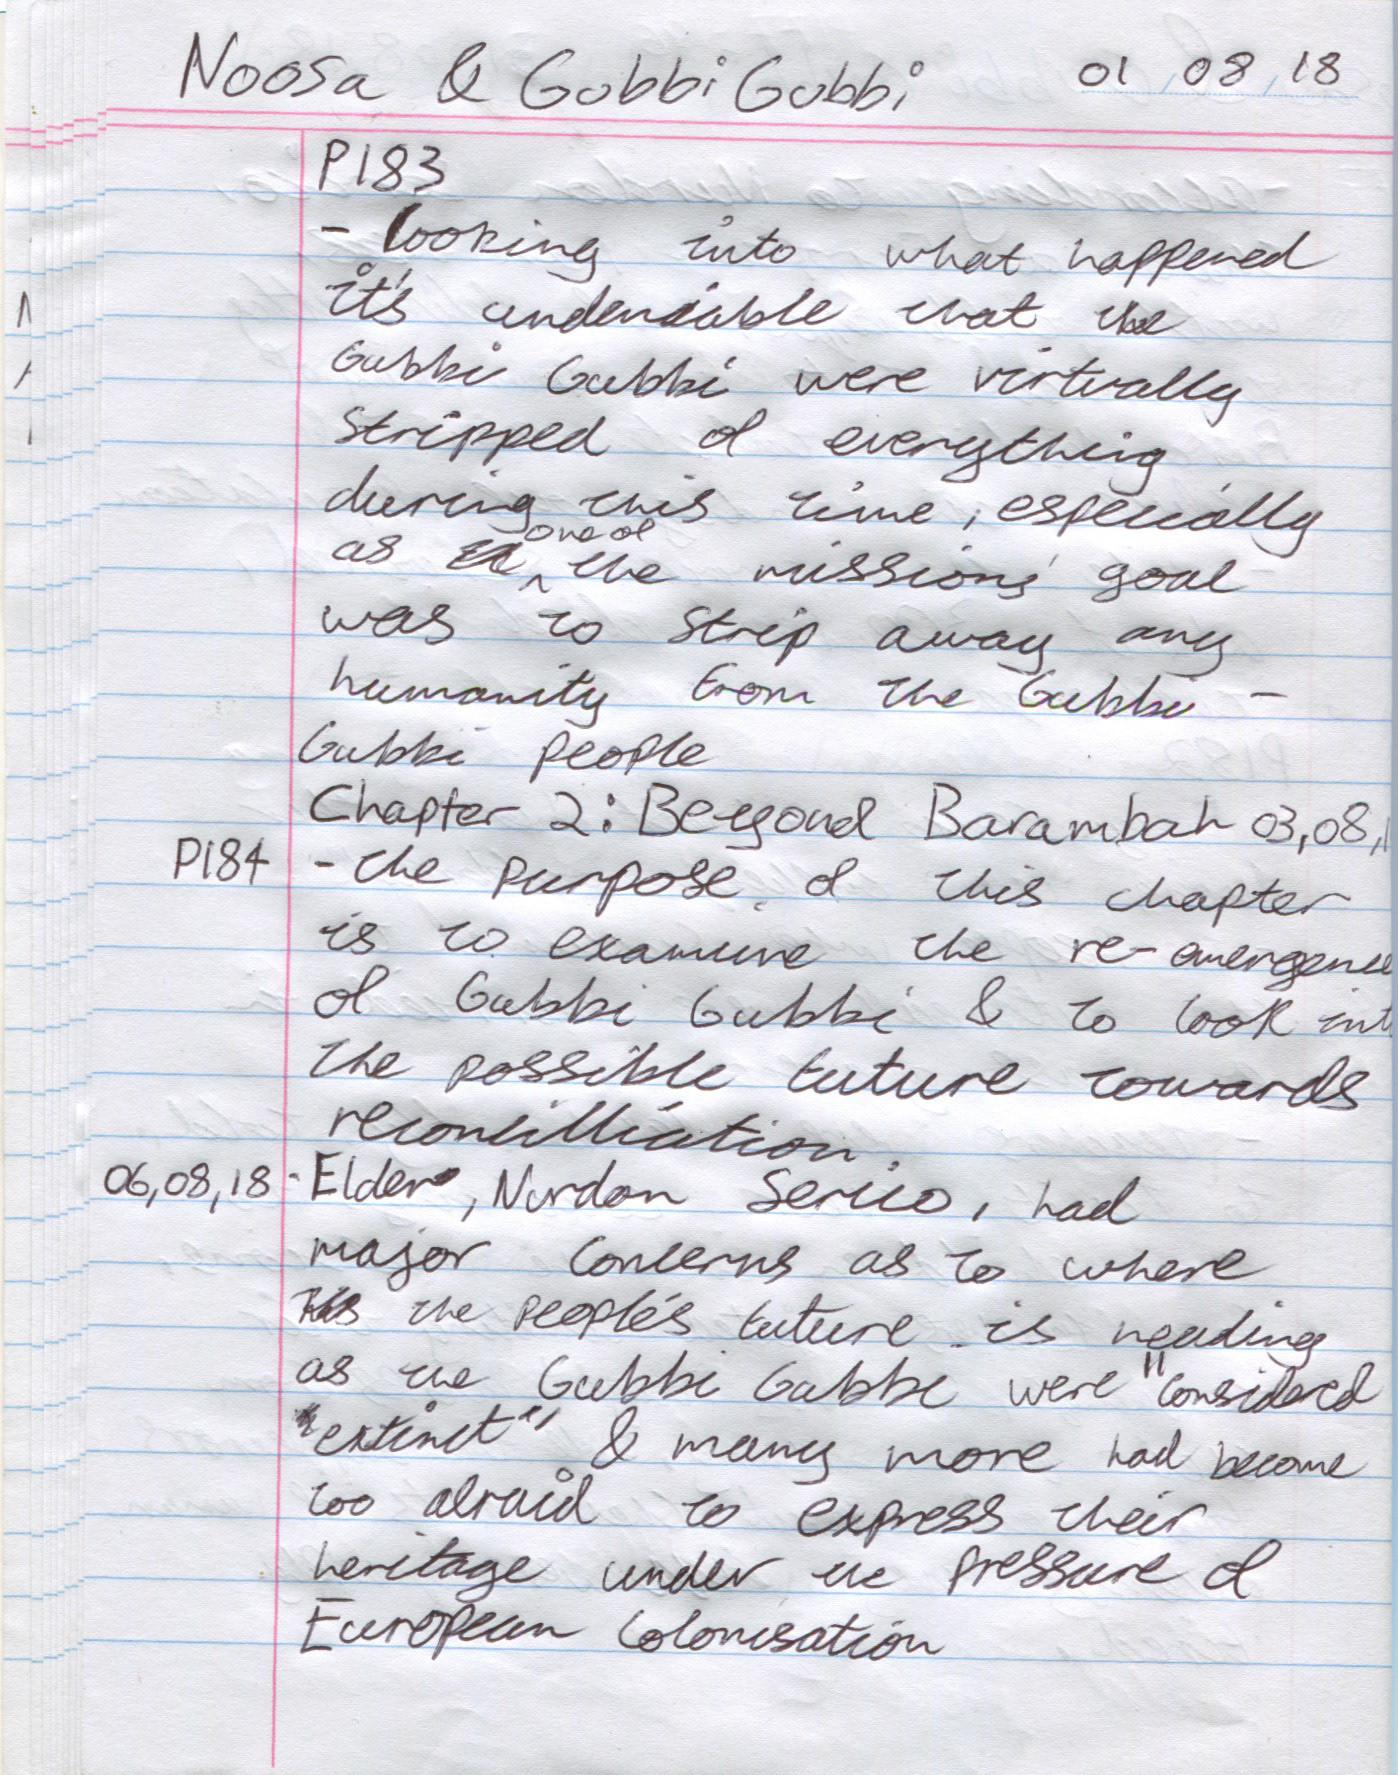 Noosa & Gubbi Gubbi 01,08,18
P183
- looking into what happened
it's undeniable that the
Gubbi Gubbi were virtually
stripped of everything
during this time, especially
as one of the missions' goal
was to strip away any
humanity from the Gubbi -
Gubbi people
Chapter 2: Beyond Barambah 03,08,1
P184 - the purpose of this chapter
is to examine the re-emergence
of Gubbi Gubbi & to look int
the possible future towards
reconcilliation.
06,08,18 - Elder, Nurdon Serico, had
major concerns as to where
the people's future is heading
as the Gubbi Gubbi were "considered
"extinct" & many more had become
too afraid to express their
heritage under the pressure of
European Colonisation